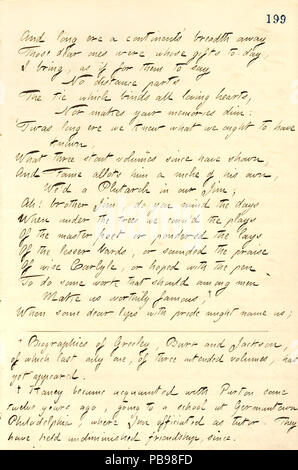 199
And long ere a continents' breadth away
Those dear ones were whose gifts to-day
I bring, as if for them to say
No distance parts
The tie which binds all loving hearts,
Nor makes your memories dim.
'Twas long ere we knew what we ought to have
known,
What three stout volumes since have shown,
And Fame allots him a niche of his own,
We'd a Plutarch in our Jim;
Ah! brother Jim, do you mind the days
When under the trees we conn'd the plays
Of the master poet or pondered the lays
Of the lesser bards, or sounded the praise
Of wise Carlyle, or hoped with the pen
To do some work that should among men
Make us worthily famous,
When some dear lips with pride might name us;
* Biographies of Greeley, Burr and Jackson,
of which last only one, of three intended volumes, has
yet appeared.
† Haney became acquainted with Parton some
twelve years ago, going to a school at Germantown
Philadelphia, where Jim officiated as tutor. They
have held undiminished friendship, since.
alamy
alamy
Image ID: PB98FD
www.alamy.com